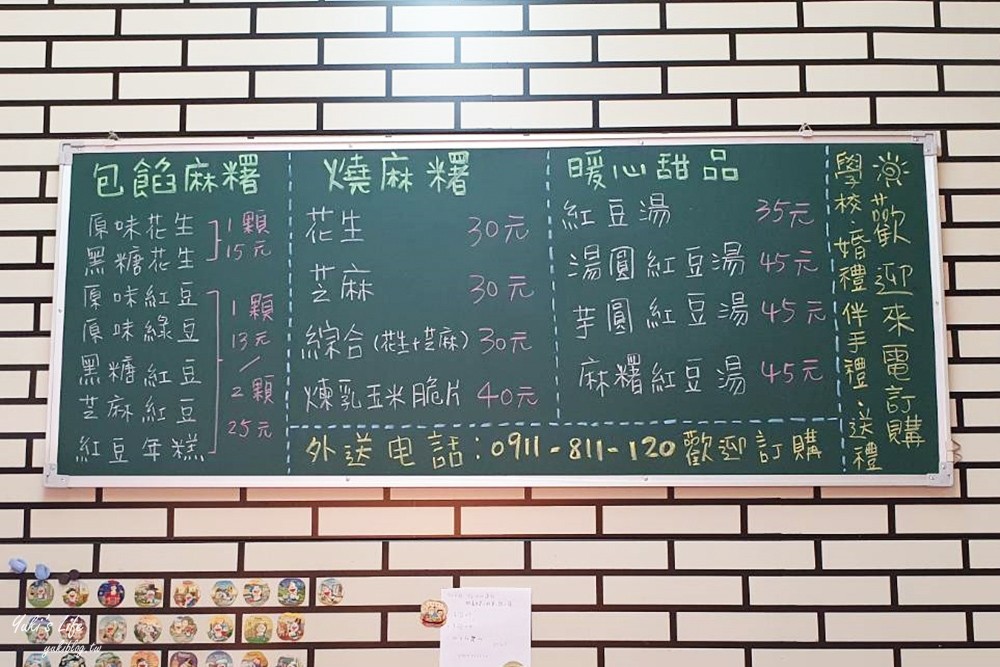 包餡麻糬
原味花生
黑糖花生
1顆
15元
原味紅豆
原味綠豆
黑糖紅豆
芝麻紅豆
紅豆年糕
1顆
13元
/
2顆
25元
燒麻糬
花生 30元
芝麻 30元
綜合(花生+芝麻) 30元
煉乳玉米脆片 40元
暖心甜品
紅豆湯 35元
湯圓紅豆湯 45元
芋圓紅豆湯 45元
麻糬紅豆湯 45元
外送电話:0911-811-120歡迎訂購
歡迎來電訂購
學校婚禮伴手禮、送禮
Yuki's Life
yukiblog.tw